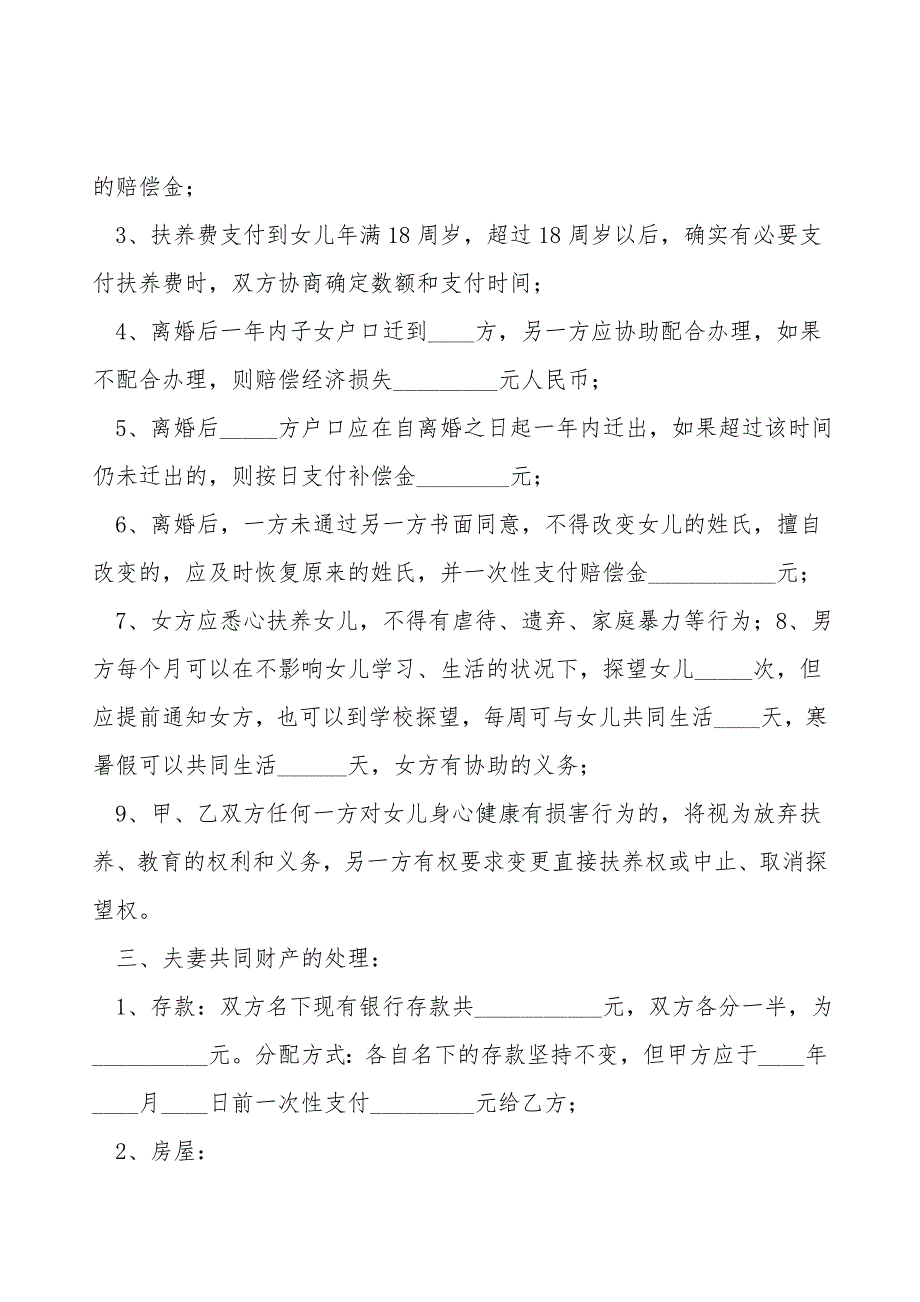 的赔偿金；
3、扶养费支付到女儿年满18周岁，超过18周岁以后，确实有必要支
付扶养费时，双方协商确定数额和支付时间；
4、离婚后一年内子女户口迁到____方，另一方应协助配合办理，如果
不配合办理，则赔偿经济损失_________元人民币；
5、离婚后_____方户口应在自离婚之日起一年内迁出，如果超过该时间
仍未迁出的，则按日支付补偿金________元；
6、离婚后，一方未通过另一方书面同意，不得改变女儿的姓氏，擅自
改变的，应及时恢复原来的姓氏，并一次性支付赔偿金___________元；
7、女方应悉心扶养女儿，不得有虐待、遗弃、家庭暴力等行为；8、男
方每个月可以在不影响女儿学习、生活的状况下，探望女儿_____次，但
应提前通知女方，也可以到学校探望，每周可与女儿共同生活____天，寒
暑假可以共同生活______天，女方有协助的义务；
9、甲、乙双方任何一方对女儿身心健康有损害行为的，将视为放弃扶
养、教育的权利和义务，另一方有权要求变更直接扶养权或中止、取消探
望权。
三、夫妻共同财产的处理：
1、存款：双方名下现有银行存款共___________元，双方各分一半，为
__________元。分配方式：各自名下的存款坚持不变，但甲方应于____年
____月____日前一次性支付_________元给乙方；
2、房屋：